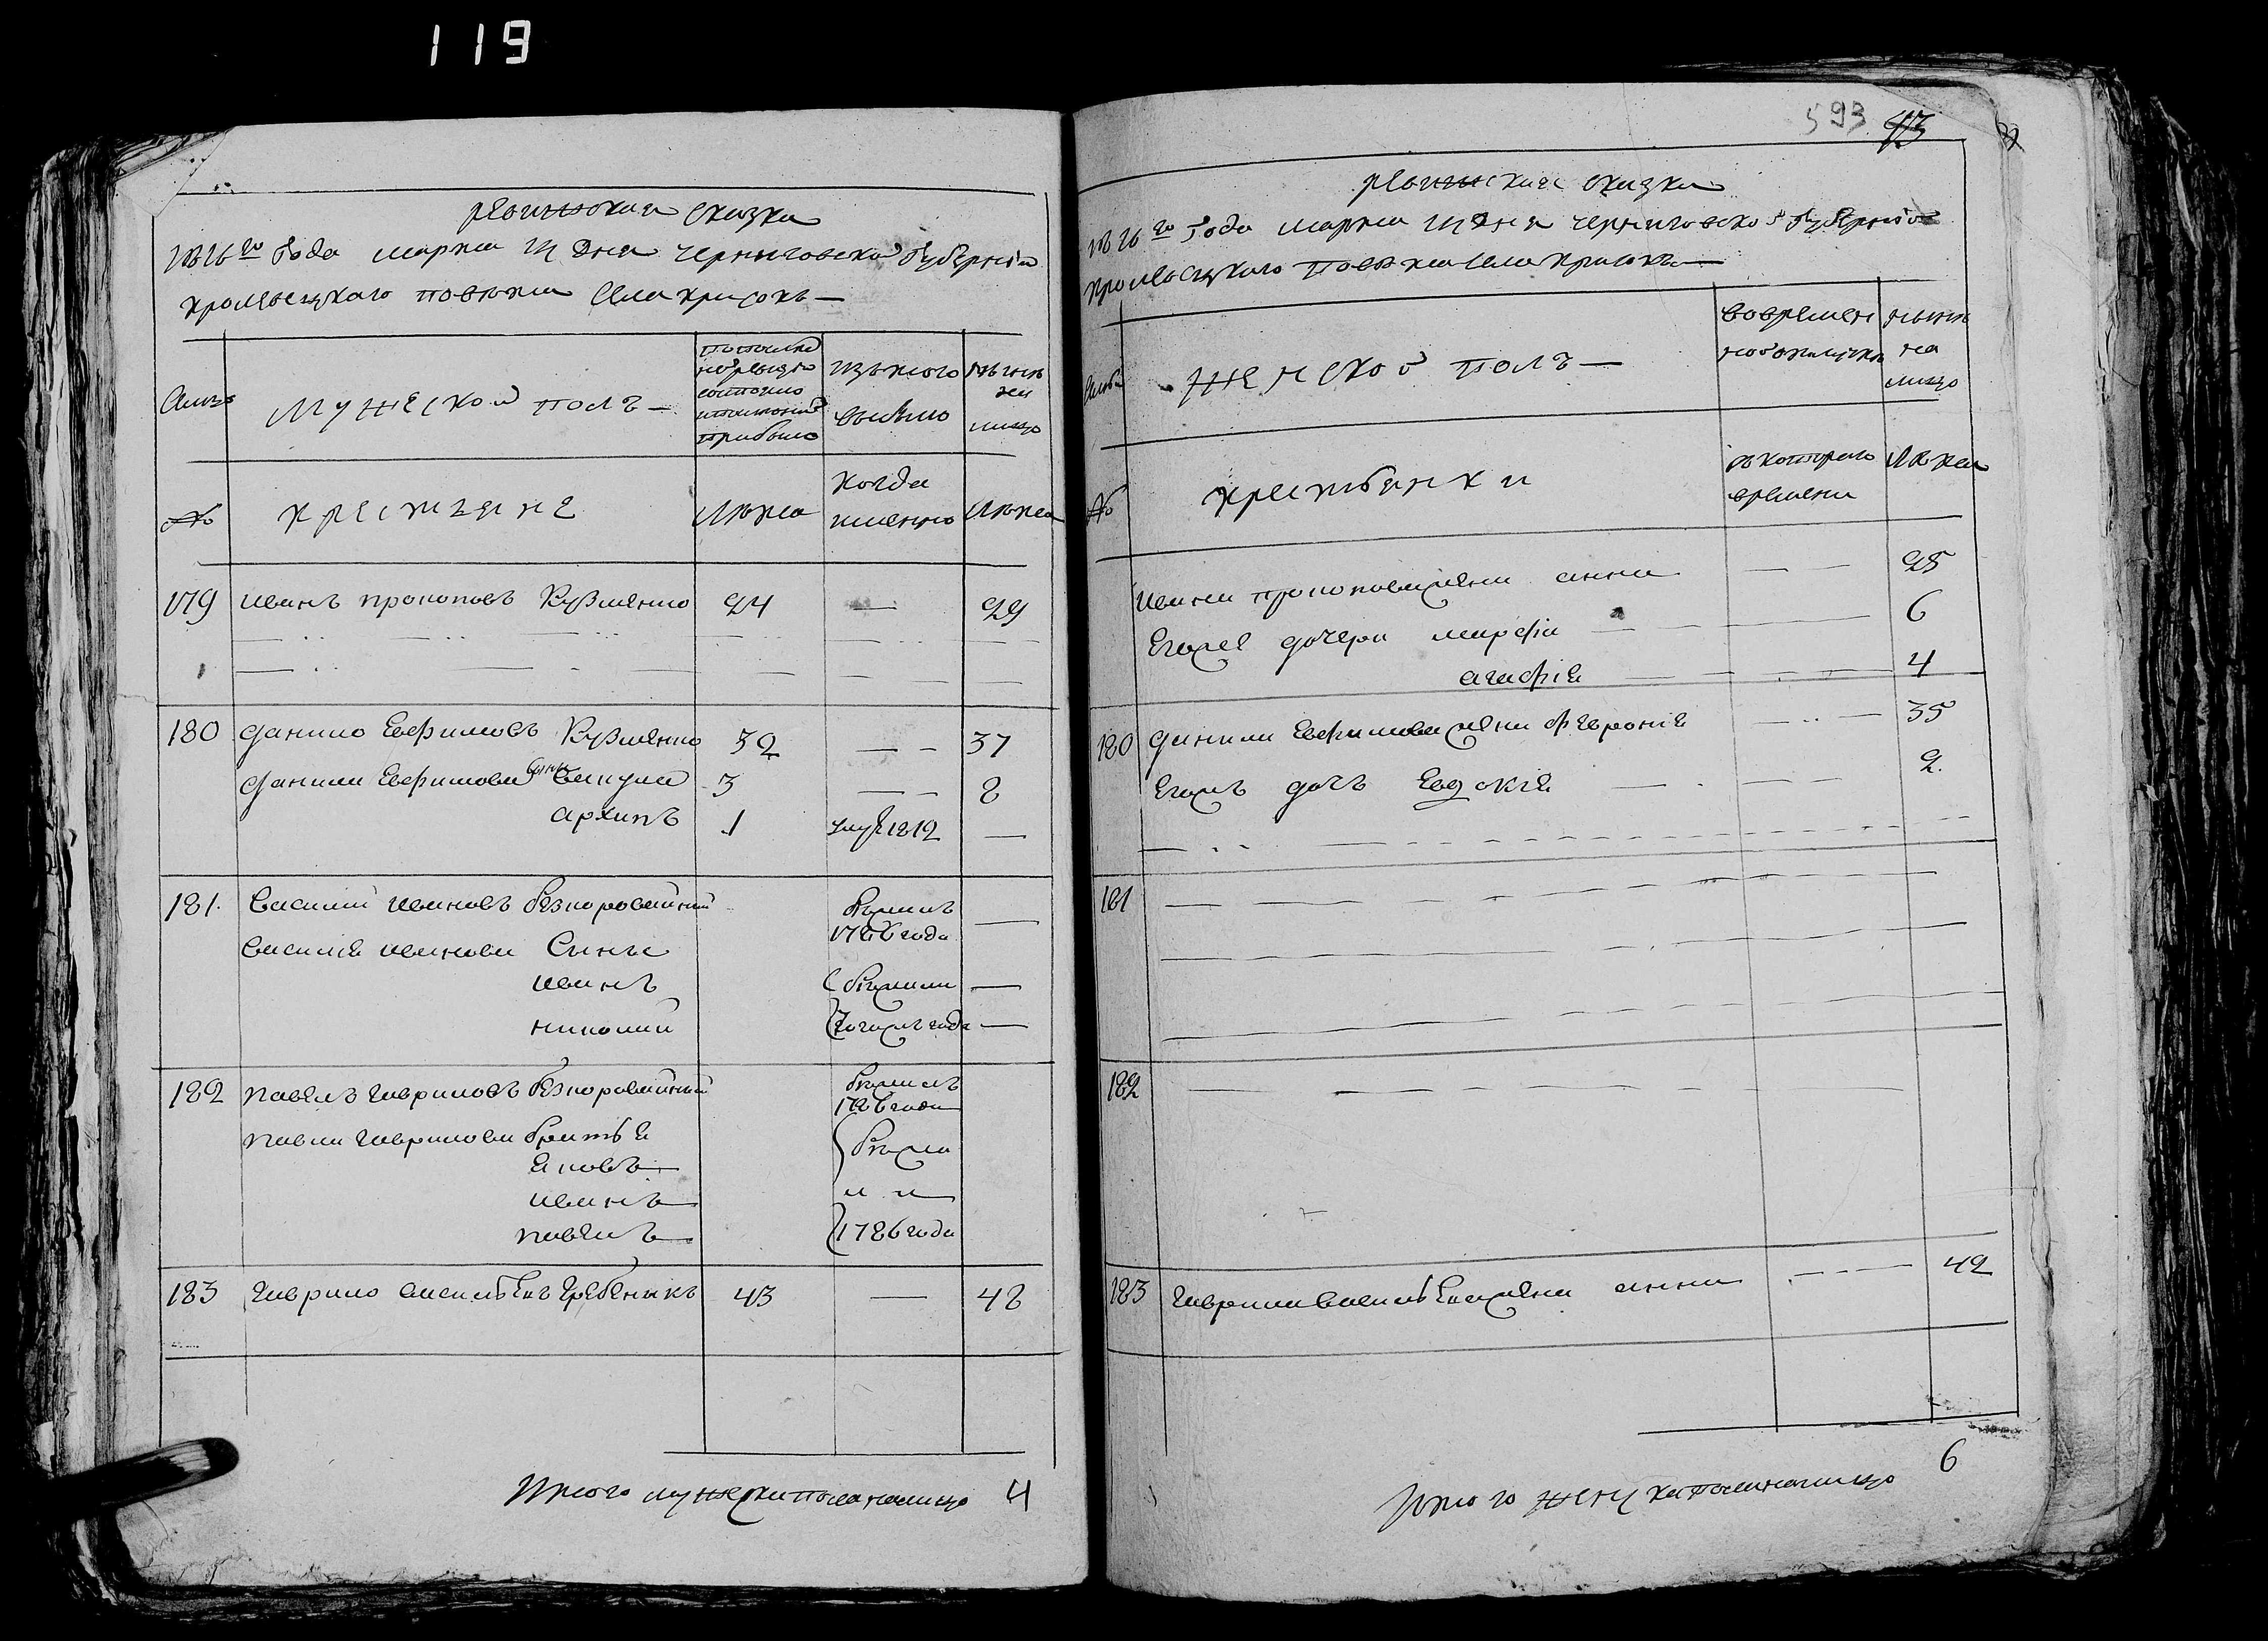 119
ревижская сказка
1816го Года марта Дня черниговской Губернии
кролевецкаго повета Села красокъ
Семьи
Мужеской полъ
по последней ревизии состояло и после оной прибыло
изъ того выбыло
ныне на лицо
№
крестьяне
Лета
когда именно
Лета
179 иванъ прокоповъ Кузменко 24 — 29
180 данило Евфимовъ Кузменко 32 — — 37
данила Евфимова сыны вакула 3 — — 8
архипъ 1 умре 1812 —
181. василий ивановъ безкоровайний бежалъ 1786 года —
василия иванова Сыны
иванъ бежали —
николай того же года —
182 павелъ гавриловъ безкоровайный бежалъ 1786 года
павла гаврилова братья
яковъ бежа
иванъ ли
павелъ 1786 года
183 гаврило васильевъ Гребеникъ 43 — 48
Итого мужеска пола налицо 4
593 93
ревижская сказка
1816го Года марта Дня черниговской Губернии
кролевецкаго повета Села красокъ
Семьи
Женской полъ
во временной отлучке
ныне на лицо
№
крестьянки
съ котораго времени
Лета
ивана прокопова жена анна — — 25
Его же дочери марфа 6
агафия 4
180 данила Евфимова жена феврония — — 35
Его же дочь Евдокия — — 2.
181
182
183 гаврила васильева жена анна 42
Итого женска пола налицо 6